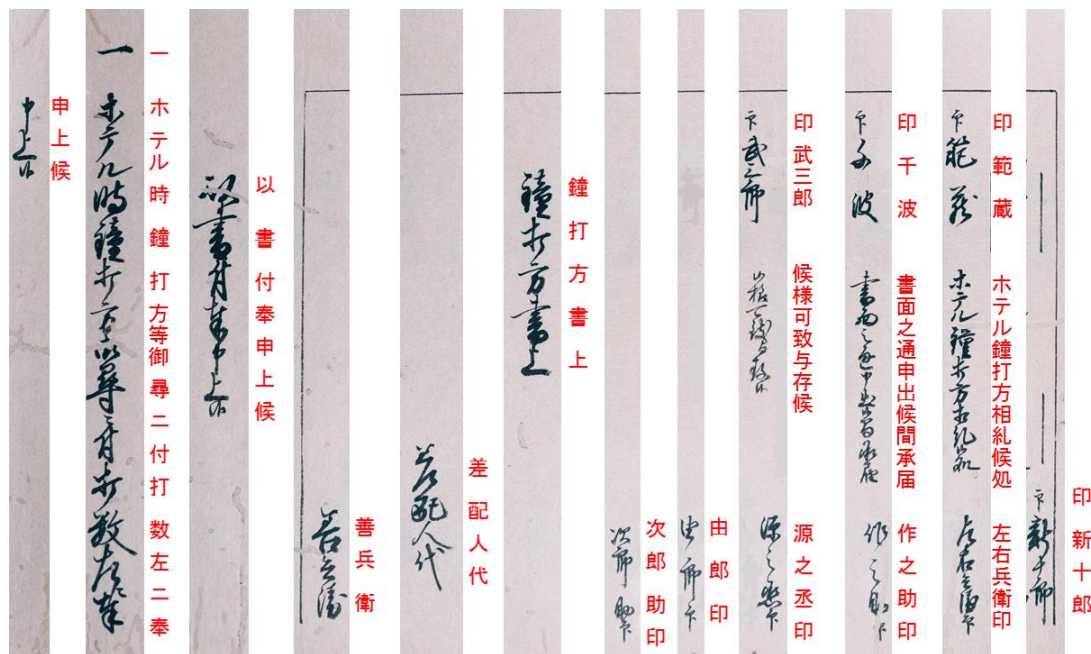 印新十郎
印範蔵 ホテル鐘打方相糺候処 左右兵衛印
印千波 書面之通申出候間承届 作之助印
印武三郎 候様可致与存候 源之丞印
由郎印
次郎助印
鐘打方書上
差配人代
善兵衛
以書付奉申上候
一 ホテル時鐘打方等御尋ニ付打数左ニ奉
申上候